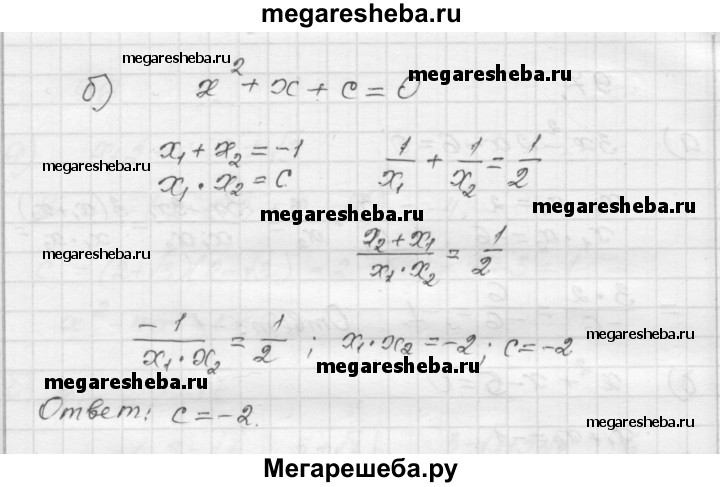 megaresheba.ru
megaresheba.ru
б) x² + x + c = 0 megaresheba.ru
megaresheba.ru x₁ + x₂ = -1
x₁ · x₂ = c
1/x₁ + 1/x₂ = 1/2
megaresheba.ru megaresheba.ru
megaresheba.ru (x₂ + x₁)/(x₁ · x₂) = 1/2
-1/(x₁ · x₂) = 1/2 ; x₁ · x₂ = -2 ; c = -2 megaresheba.ru
megaresheba.ru megaresheba.ru
Ответ: c = -2. megaresheba.ru
Мегарешеба.ру